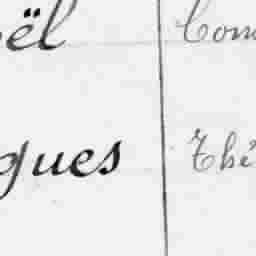 ël Com
gues Thé